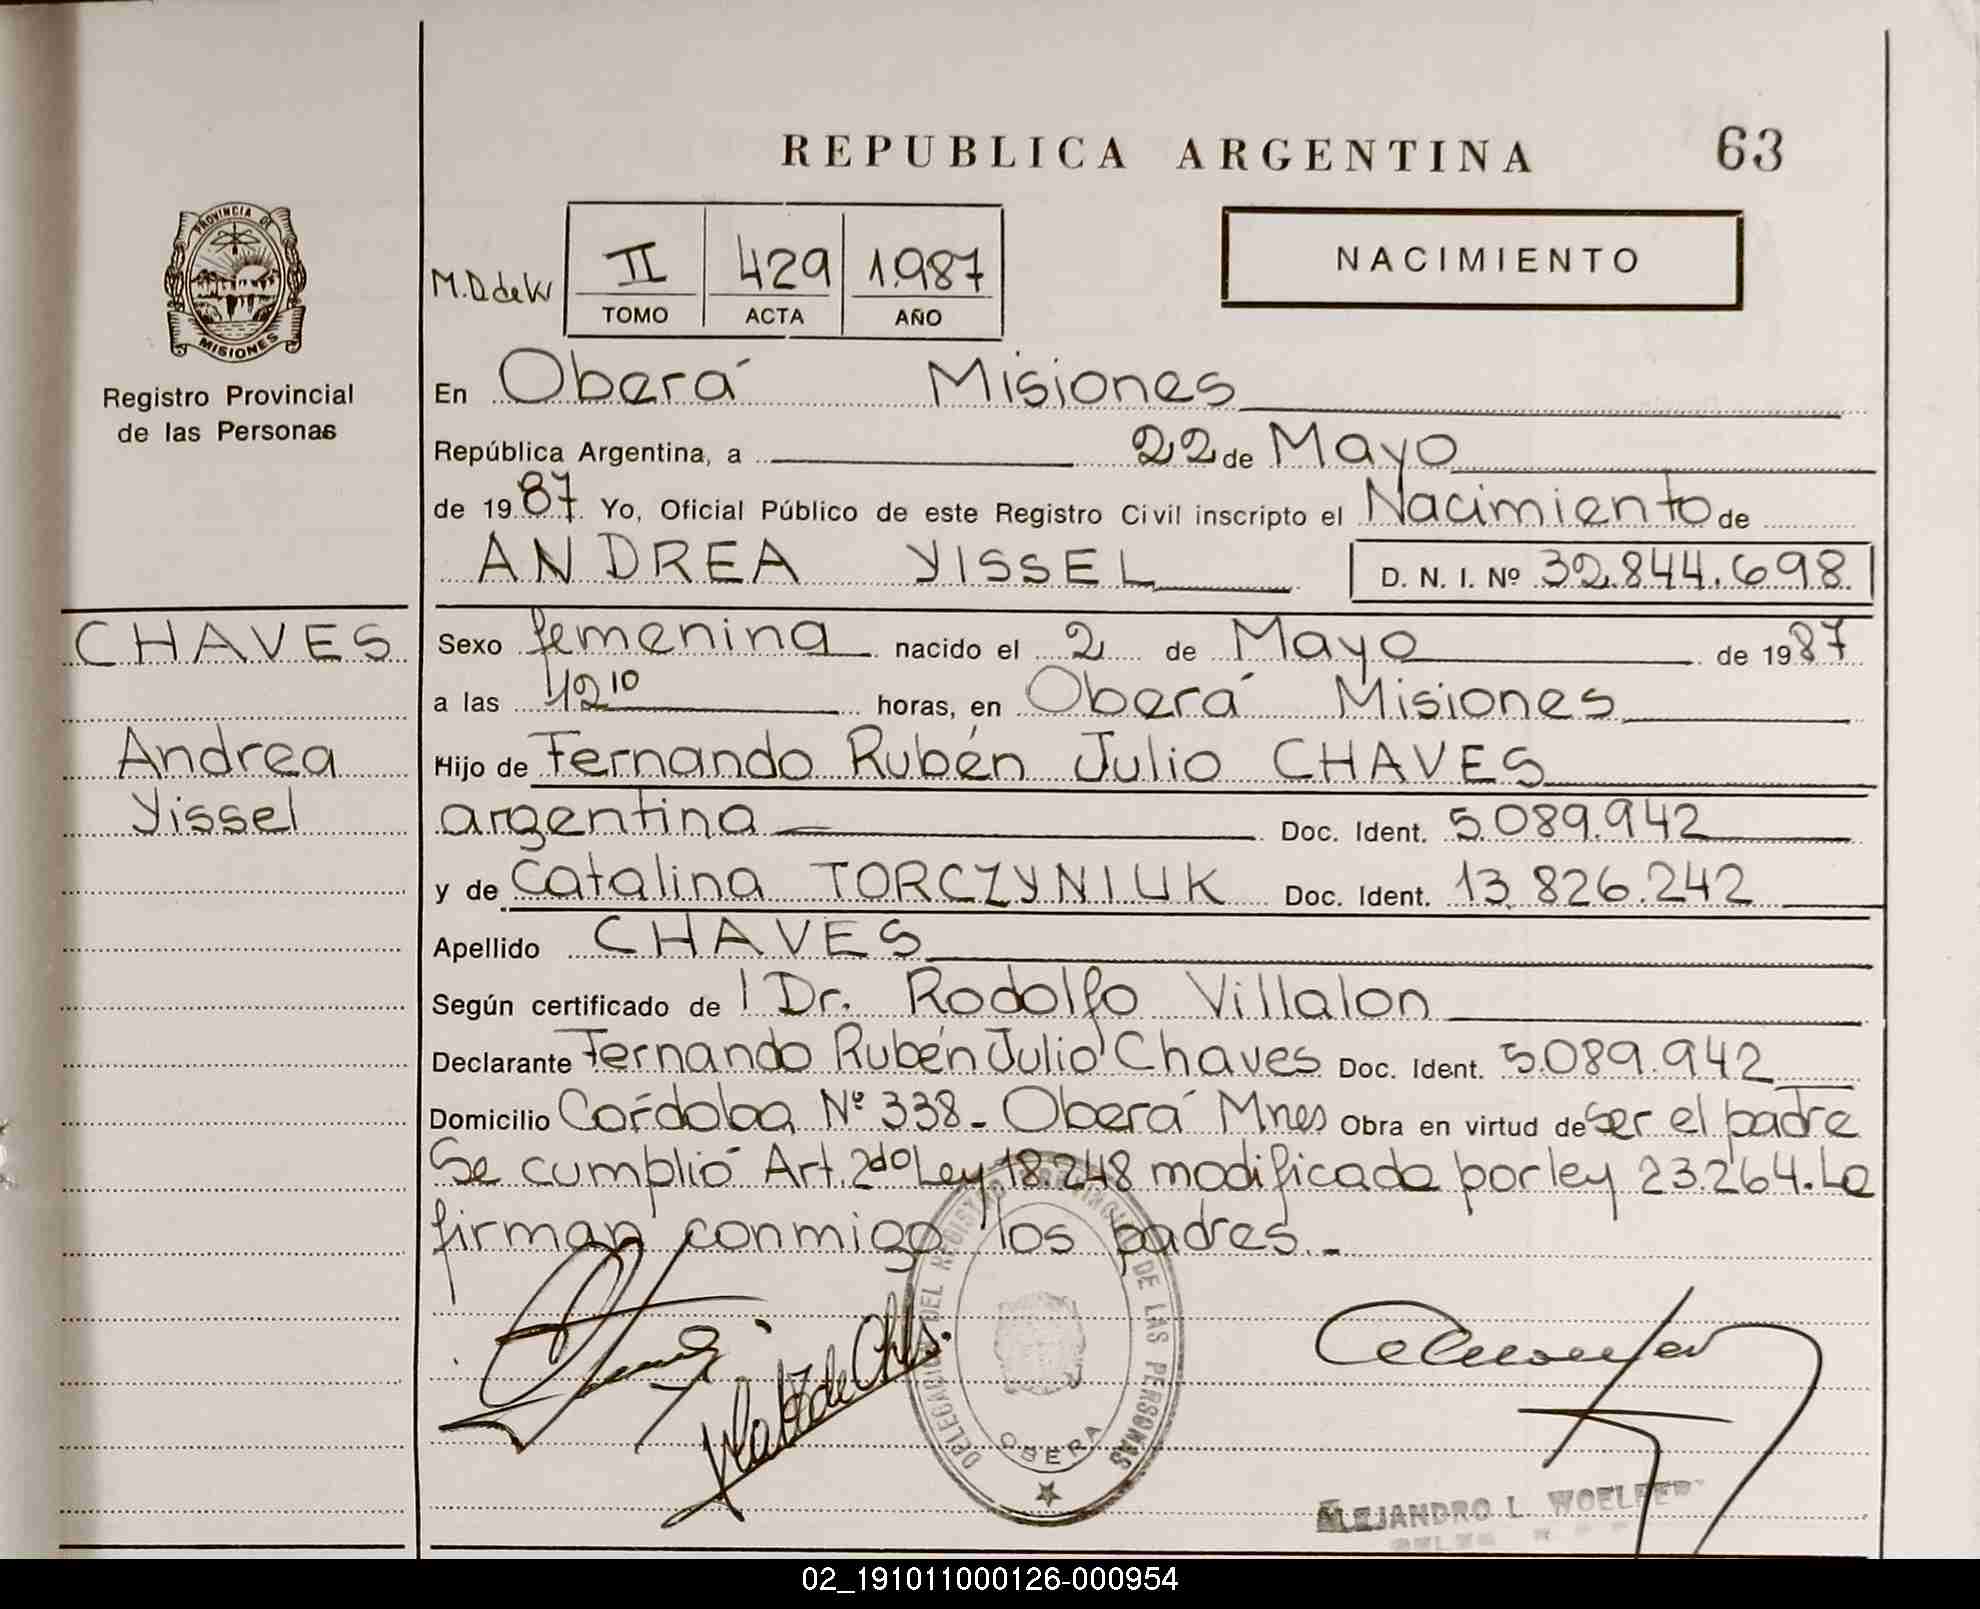 REPUBLICA ARGENTINA
63
PROVINCIA DE
MISIONES
Registro Provincial
de las Personas
II 429 1.987
TOMO ACTA AÑO
NACIMIENTO
En Oberá Misiones
República Argentina, a 22 de Mayo
de 1987. Yo, Oficial Público de este Registro Civil inscripto el Nacimiento de
ANDREA YISSEL D. N. I. Nº 32.844.698
CHAVES
Andrea
Yissel
Sexo femenina nacido el 2 de Mayo de 1987
a las 12 10 horas, en Oberá Misiones
Hijo de Fernando Rubén Julio CHAVES
argentina Doc. Ident. 5.089.942
y de Catalina TORCZYNIUK Doc. Ident. 13.826.242
Apellido CHAVES
Según certificado de l Dr. Rodolfo Villalon
Declarante Fernando Rubén Julio Chaves Doc. Ident. 5.089.942
Domicilio Córdoba Nº 338 - Oberá Mnes Obra en virtud de ser el padre
Se cumplió Art. 2do Ley 18.248 modificada por ley 23.264. La
firman conmigo los padres.-
DELEGACION DEL REGISTRO PROVINCIAL DE LAS PERSONAS
OBERA
ALEJANDRO L. WOELFER
02_191011000126-000954